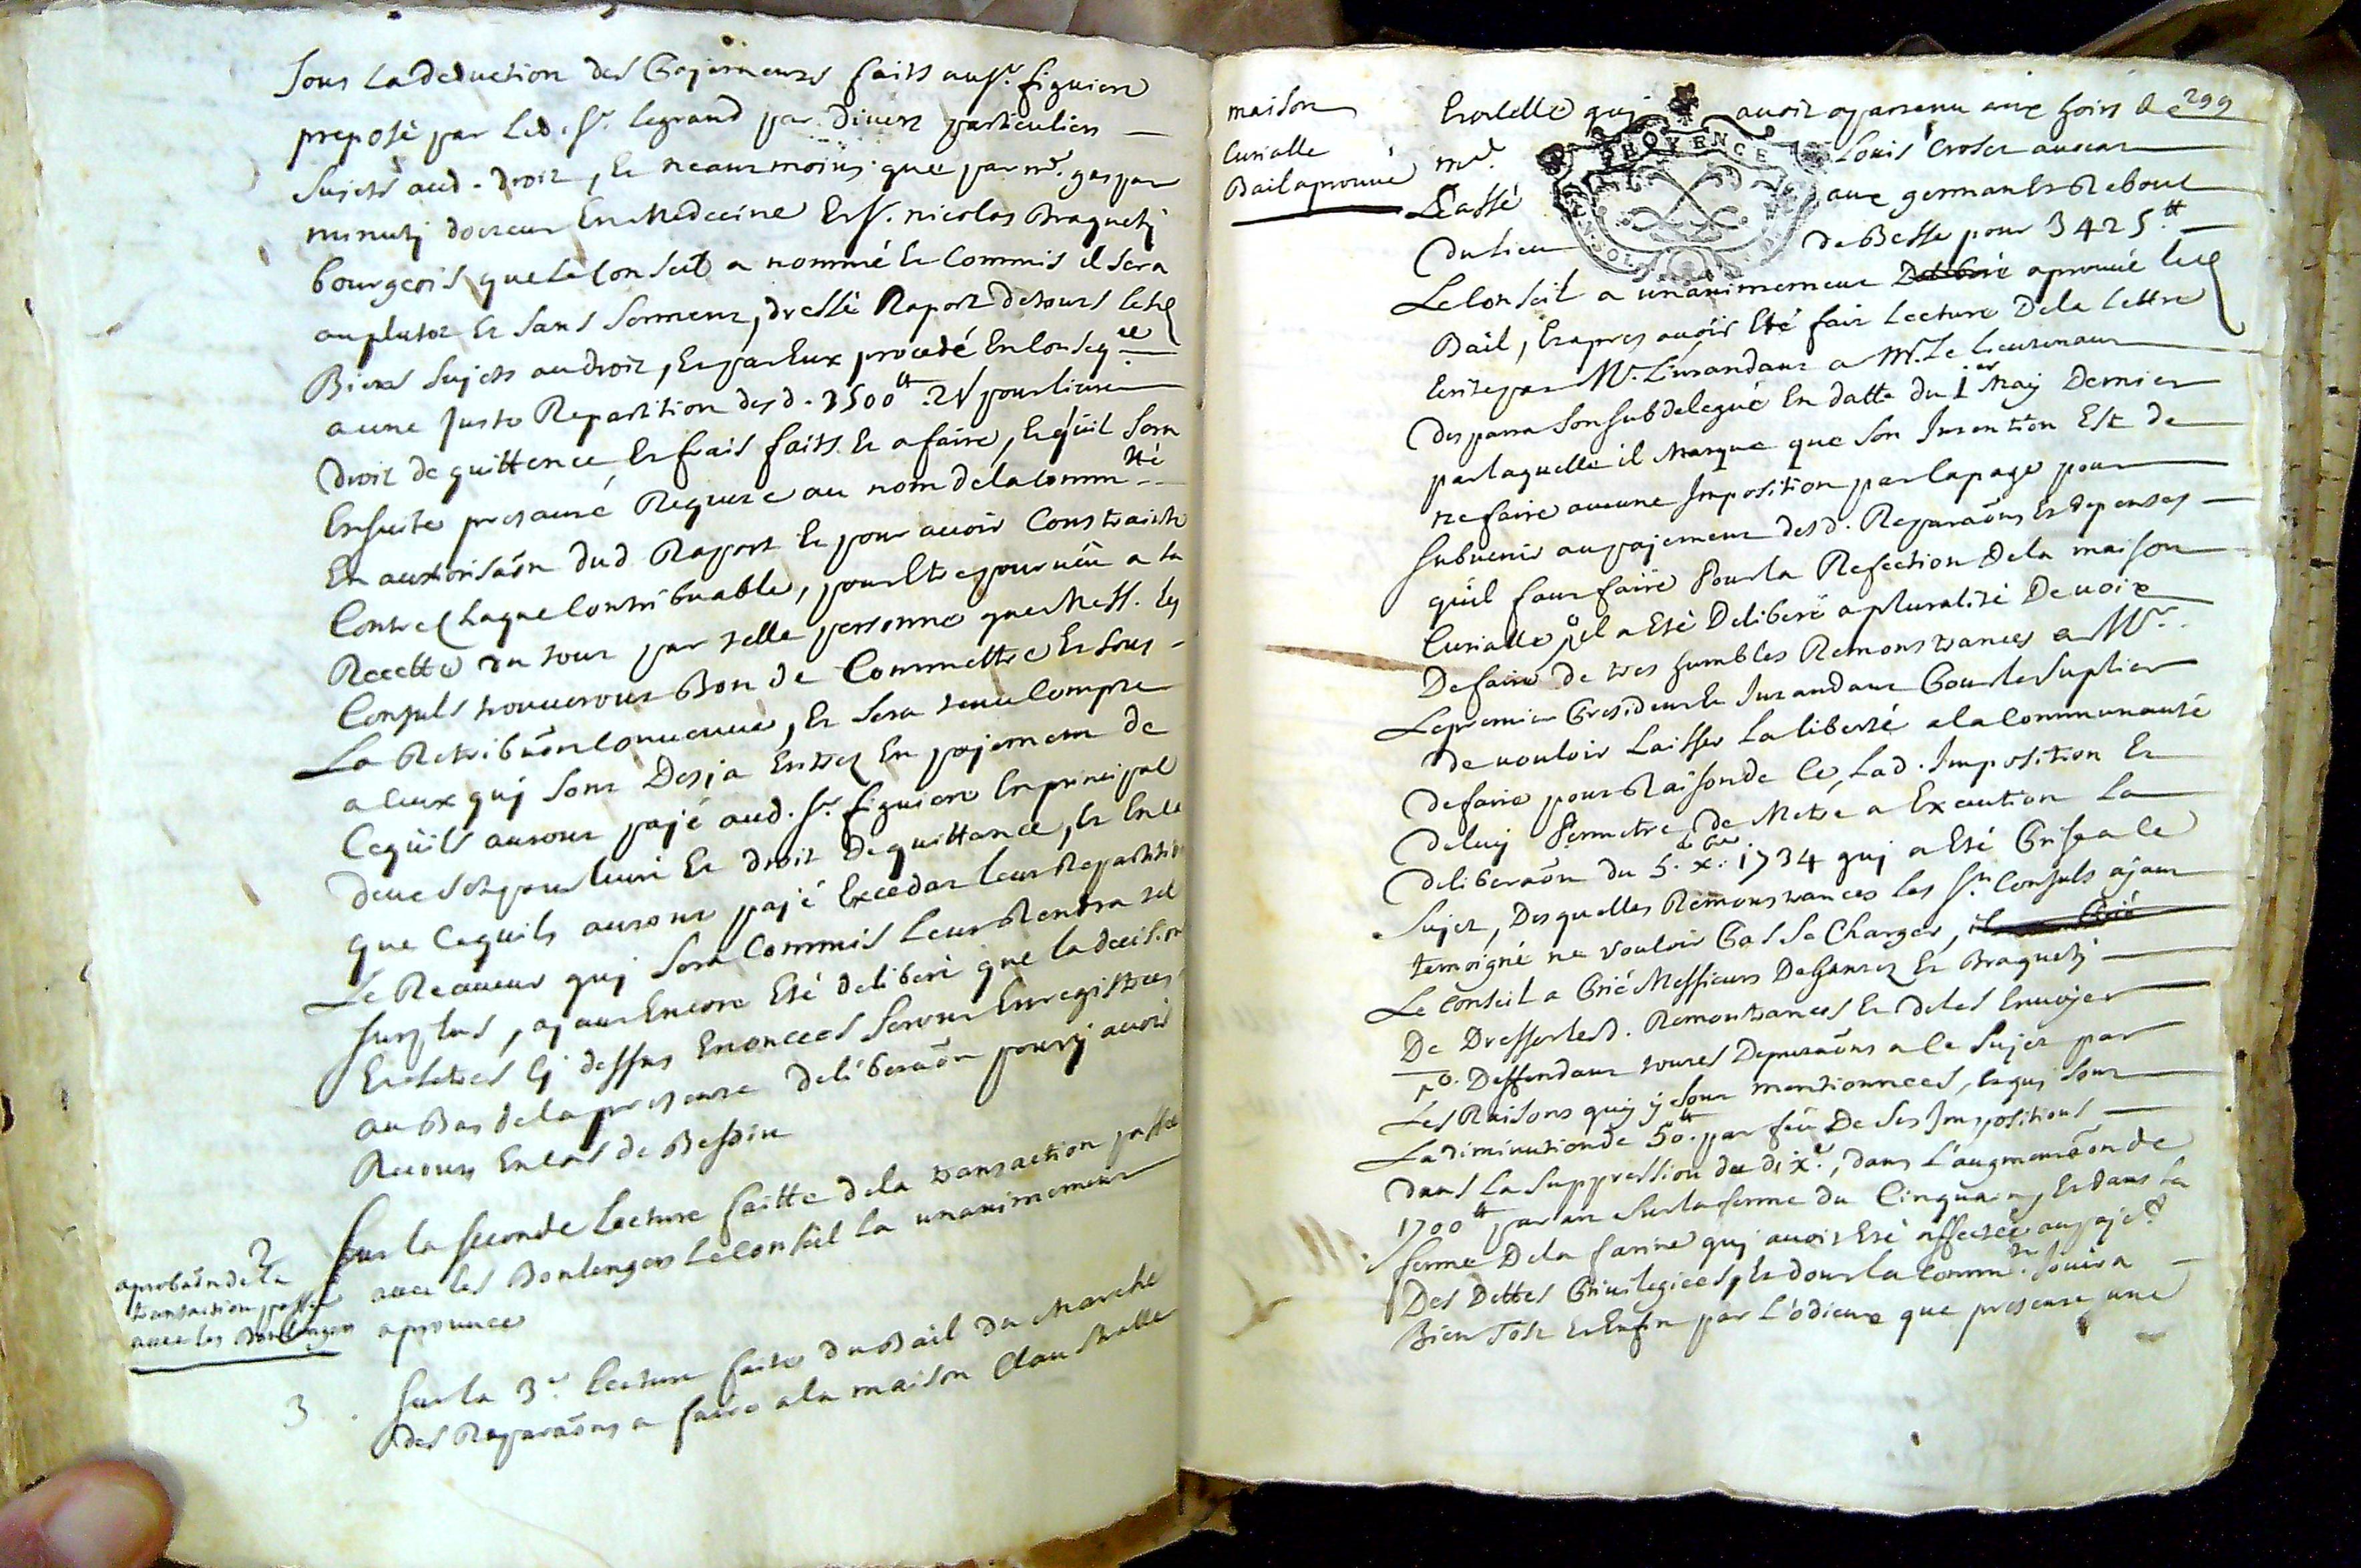 Sous la deduction des Payemeus faits au sr. figuiere
preposé par led. sr. legrand par divers particuliers
sujets aud. droit, Et neaumoins que par mr. gaspar
minutj docteur En Medecine Et sr. nicolas Braguetj
bourgeois que le Conseil a nommé Et Commis il sera
auplutot Et sans serment, dressé Raport de tous les
Biens sujets audroit, Et par Eux procedé En
a une Juste Repartition des d. 3500tt. 2s pour livre
droit de quittence Et frais faits Et a faire, Et quil sera
Ensuite presanté Requete au nom delacomm.tté
En autorisaõn dud Raport Et pour avoir Contrainte
Contre Chaque Contribuable, pour Etre pourveü a la
Recette du tout par telle personne que Mess. les
Consuls trouveront Bon de Commettre Et sous
La Retribuõn Convenue, Et sera tenu Compte
a Ceux quj sont Desja Entrez En pajement de
Cequils auront pajé aud. sr. figuiere En principal
deux sols pour livre Et droit De quittance, Et En Ce
que Cequils auront pajé Excedat leur Repartition
Le Receveur quj sera Commis leur Rendra le
surplus, ajant Encore Eté deliberé que la decision
Et lettres Cj dessus Enoncées seront Enregistrées
au Bas de la presente deliberaõn pour y avoir
Recours En cas de Besoin
2 Sur la seconde Lecture faitte dela transaction passée
avec les Boulengers le Conseil la unanimement
aprouvee
aprobaõn de la
transaction passée
avec les Boulengers
3 . Sur la 3e. Lecture faite du Bail du Marché
des Reparaõns a faire a la maison Claustralle
299
maison
Curialle
Bail aprouvé
Et celle quj avoit apartenu aux hoirs de
md. Louis Croset avocat
Passé aux germans Et Reboul
du lieu de Besse pour 3425tt.
PROVENCE
Le Conseil a unanimement Deliberé aprouvé led
Bail, Et apres avoir Eté fait Lecture Dela Lettre
Ecrite par Mr. L'intandant a Mr. Le Lieutenant
des parra son subdelegué En datte du 1er May Dernier
par laquelle il Marque que son Intention Est de
ne faire aucune Imposition par Capage pour
subvenir au pajement des d. Reparaõns Et depenses
quil faut faire Pour la Refection De la maison
Curialle, il a Eté Deliberé a pluralité De voix
De faire de tres humbles Remonstrances a Mr.
Le premier President Et Intandant Pour le suplier
de vouloir Laisser la liberté a la Communauté
de faire pour Raison de Ce, Lad. Imposition Et
de luj Permetre de Metre a Execution la
deliberaõn du 5. xbre. 1734 quj a Eté Prise a Ce
sujet, Desquelles Remonstrances les srs. Consuls ajant
temoigné ne vouloir Pas se Charger,
Le Conseil a Prié Messieurs De Gantez Et Braguetj
De Dresser lesd. Remontrances Et de les Envoyer
Deffendant toutes Deputaõns a Ce sujet par
Les Raisons quj y sont mentionnees, Et quj sont
La diminution de 50tt. par feu De ses Impositions
dans la suppression du dixe., dans l'augmentaõn de
1700tt par an sur la ferme du Cinquain, Et dans la
ferme De la farine quj avoit Eté affectée au paje.t
Des Dettes Privilegiees, Et dont la Comm.té Jouira
Bien Tost Et Enfin par L'odieux que presente une